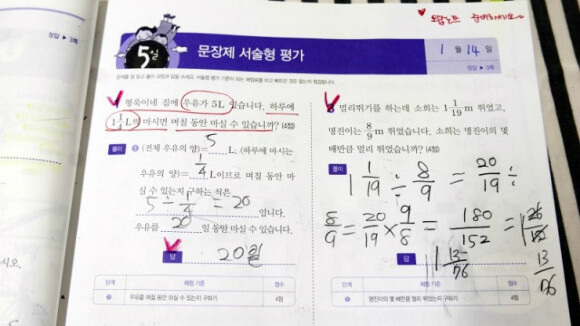 오답노트
5일
문장제 서술형 평가
1월 14일
정답 ▶ 3쪽
1 형욱이네 집에 우유가 5L 있습니다. 하루에
1 1/4 L씩 마시면 며칠 동안 마실 수 있습니까? (4점)
풀이 ❶ (전체 우유의 양)= 5 L, (하루에 마시는
우유의 양)= 1/4 L이므로 며칠 동안 마
실 수 있는지 구하는 식은
5 ÷ 1/4 = 20 입니다.
우유를 20 일 동안 마실 수 있습니다.
답 20일
단계 채점 기준 점수
❶ 우유를 며칠 동안 마실 수 있는지 구하기 4점
멀리뛰기를 하는데 소희는 1 1/19 m 뛰었고,
명진이는 8/9 m 뛰었습니다. 소희는 명진이의 몇
배만큼 멀리 뛰었습니까? (4점)
풀이
1 1/19 ÷ 8/9 = 20/19 ÷
8/9 = 20/19 × 9/8 = 180/152 = 1
답 1 13/76
13/76
단계 채점 기준 점수
❶ 명진이의 몇 배만큼 멀리 뛰었는지 구하기 4점
시오.